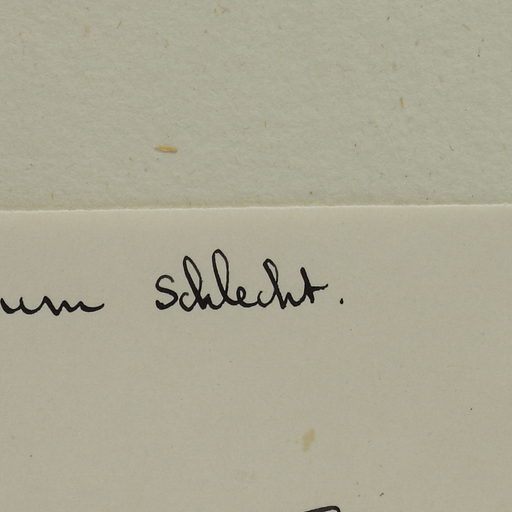 um schlecht.